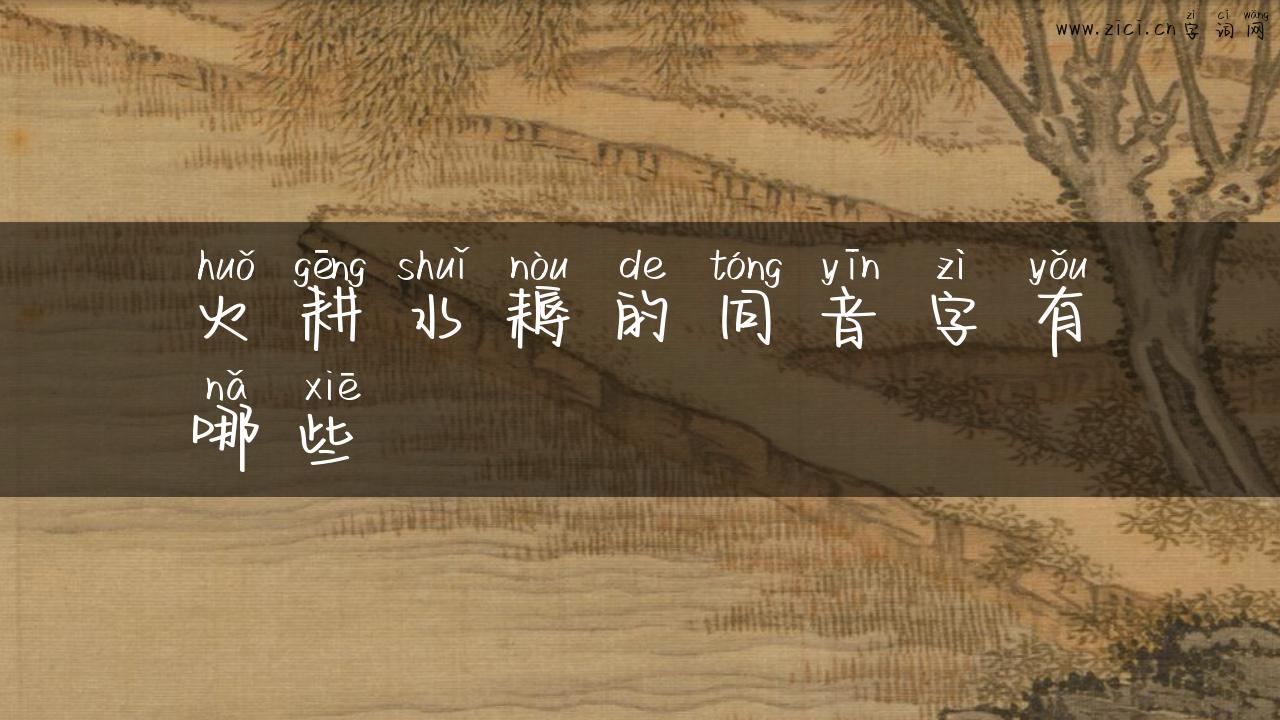 zì cí wǎng
www.zici.cn字词网
huǒ gēng shuǐ nòu de tóng yīn zì yǒu
火耕水耨的同音字有
nǎ xiē
哪些